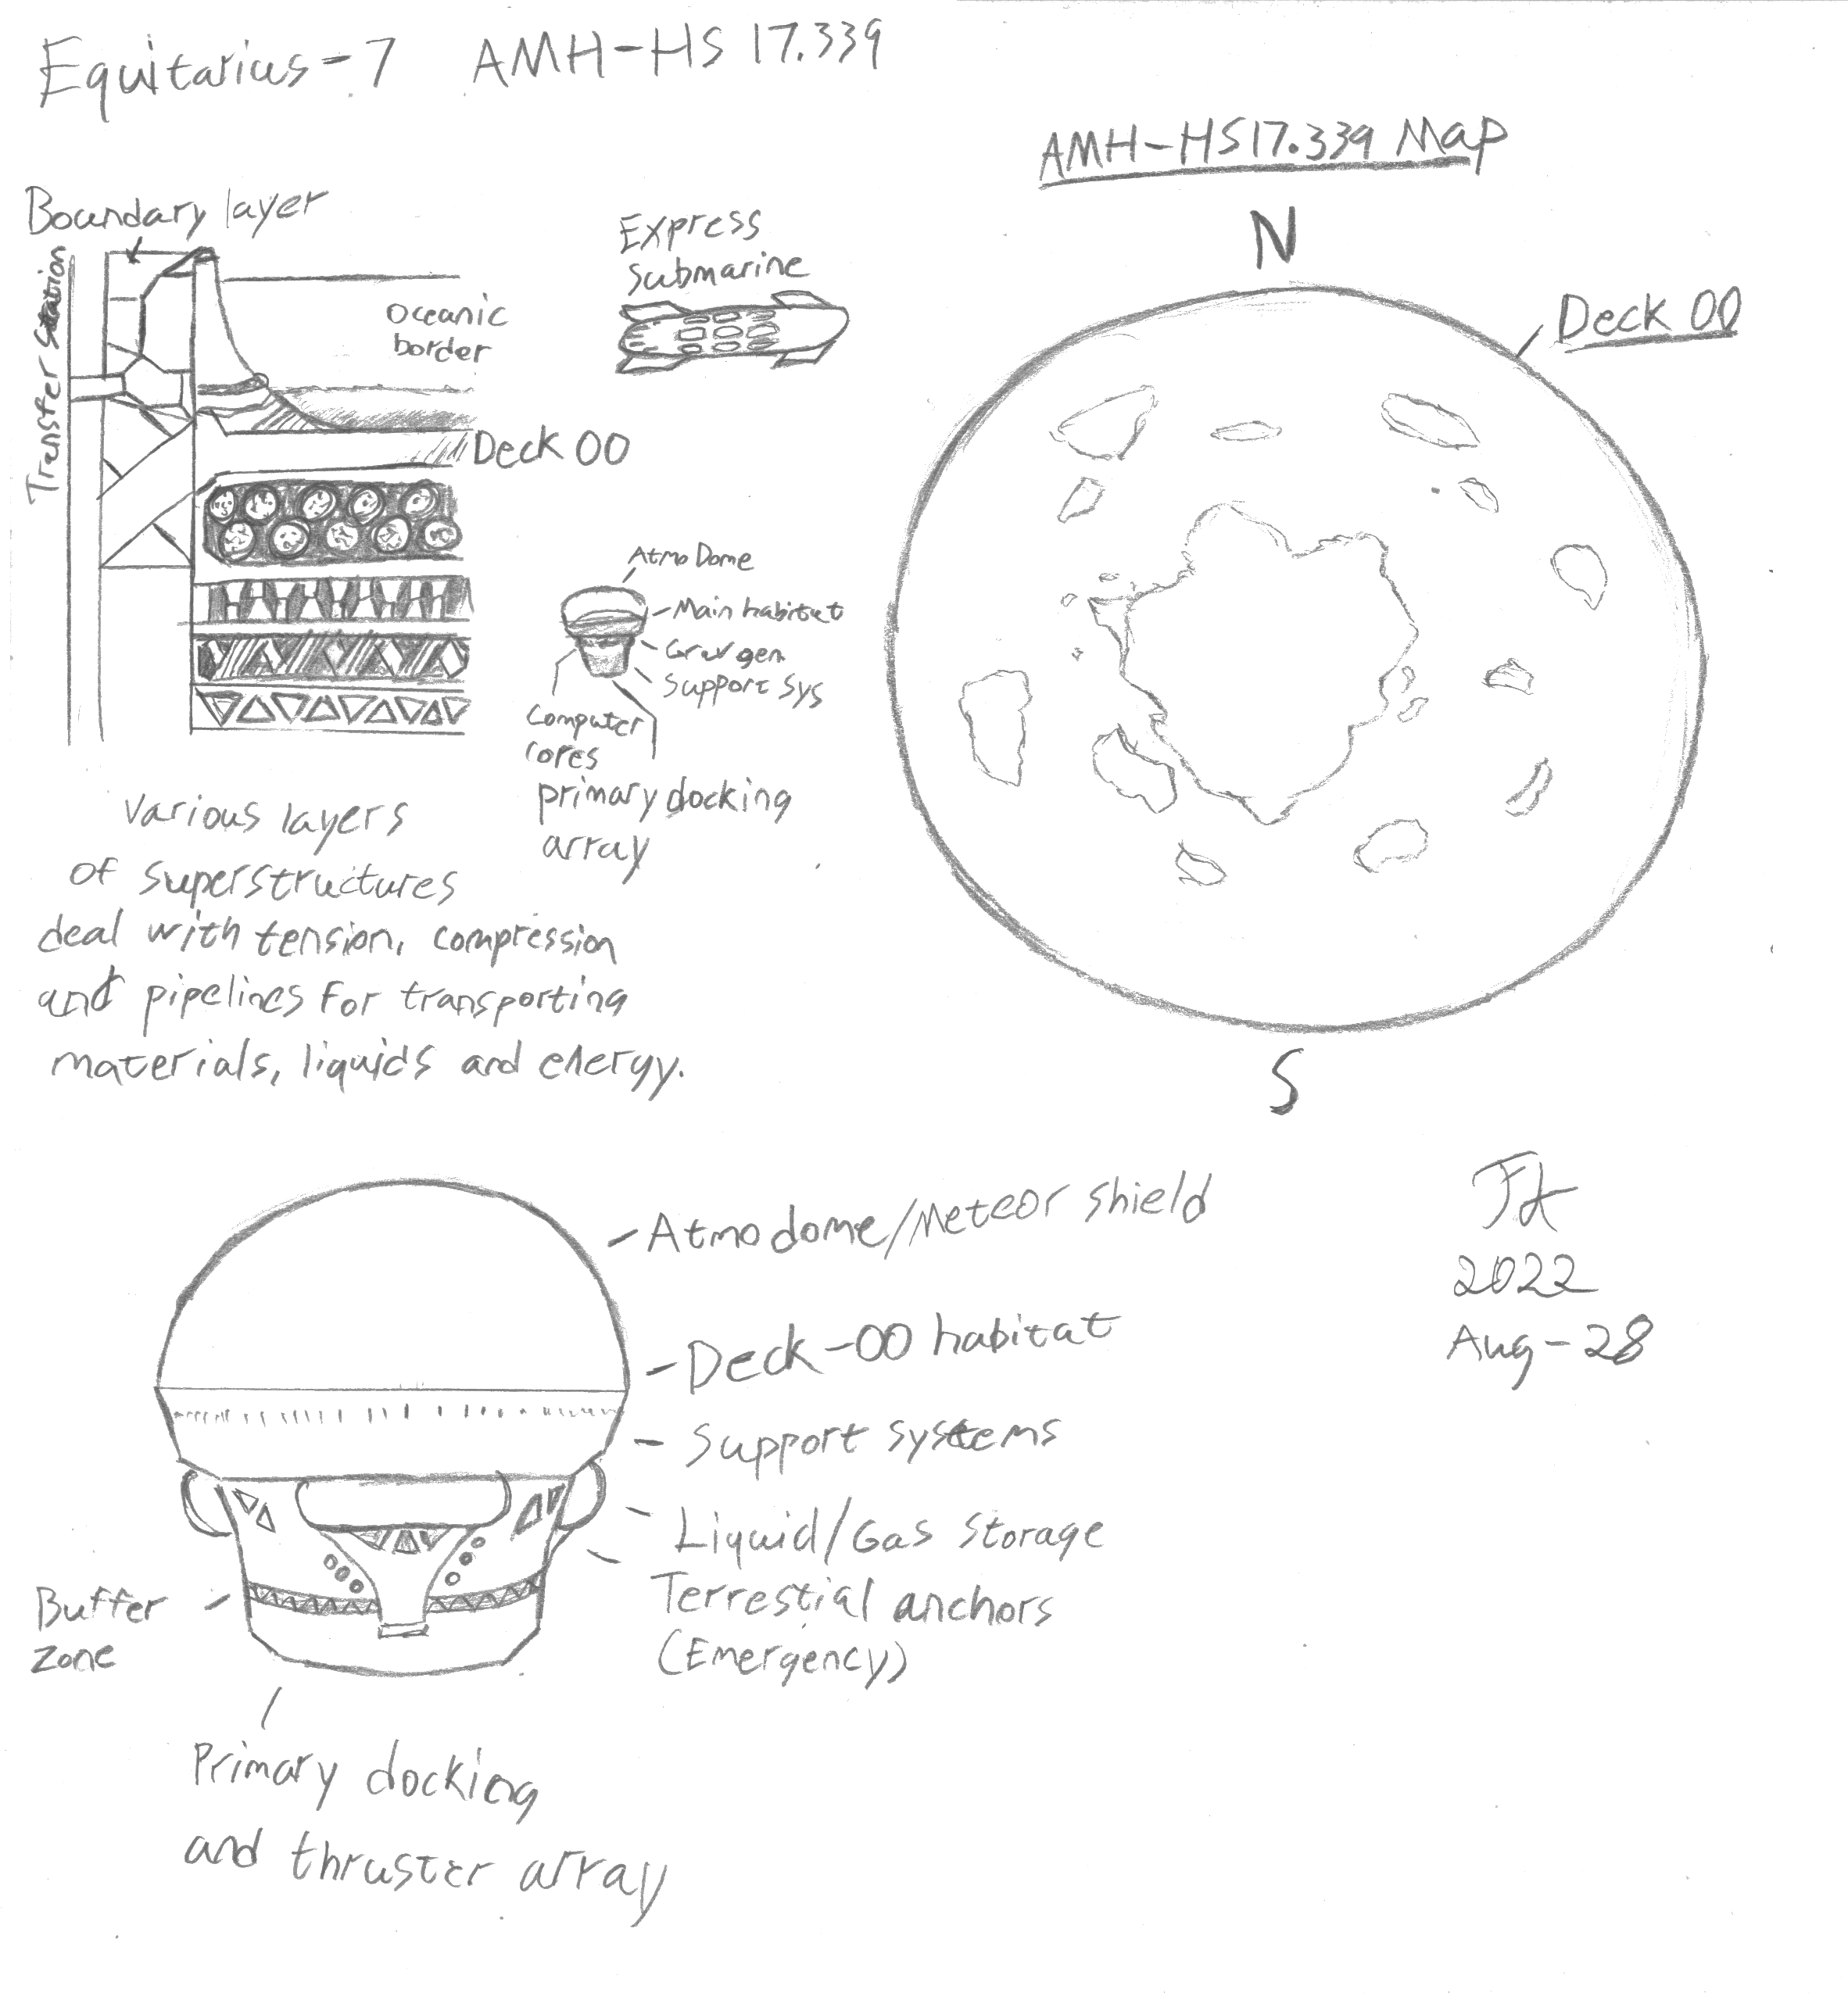 Equitarius-7 AMH-HS 17.339
AMH-HS17.339 Map
N
Deck 00
S
Boundary layer
Transfer Station
Oceanic
border
Deck 00
Express
submarine
Atmo Dome
Main habitat
Grav gen
Support sys
Computer
cores
primary docking
array
Various layers
of superstructures
deal with tension, compression
and pipelines for transporting
materials, liquids and energy.
Atmo dome/Meteor shield
Deck-00 habitat
Support systems
Liquid/Gas storage
Terrestial anchors
(Emergency)
Buffer
zone
Primary docking
and thruster array
2022
Aug-28